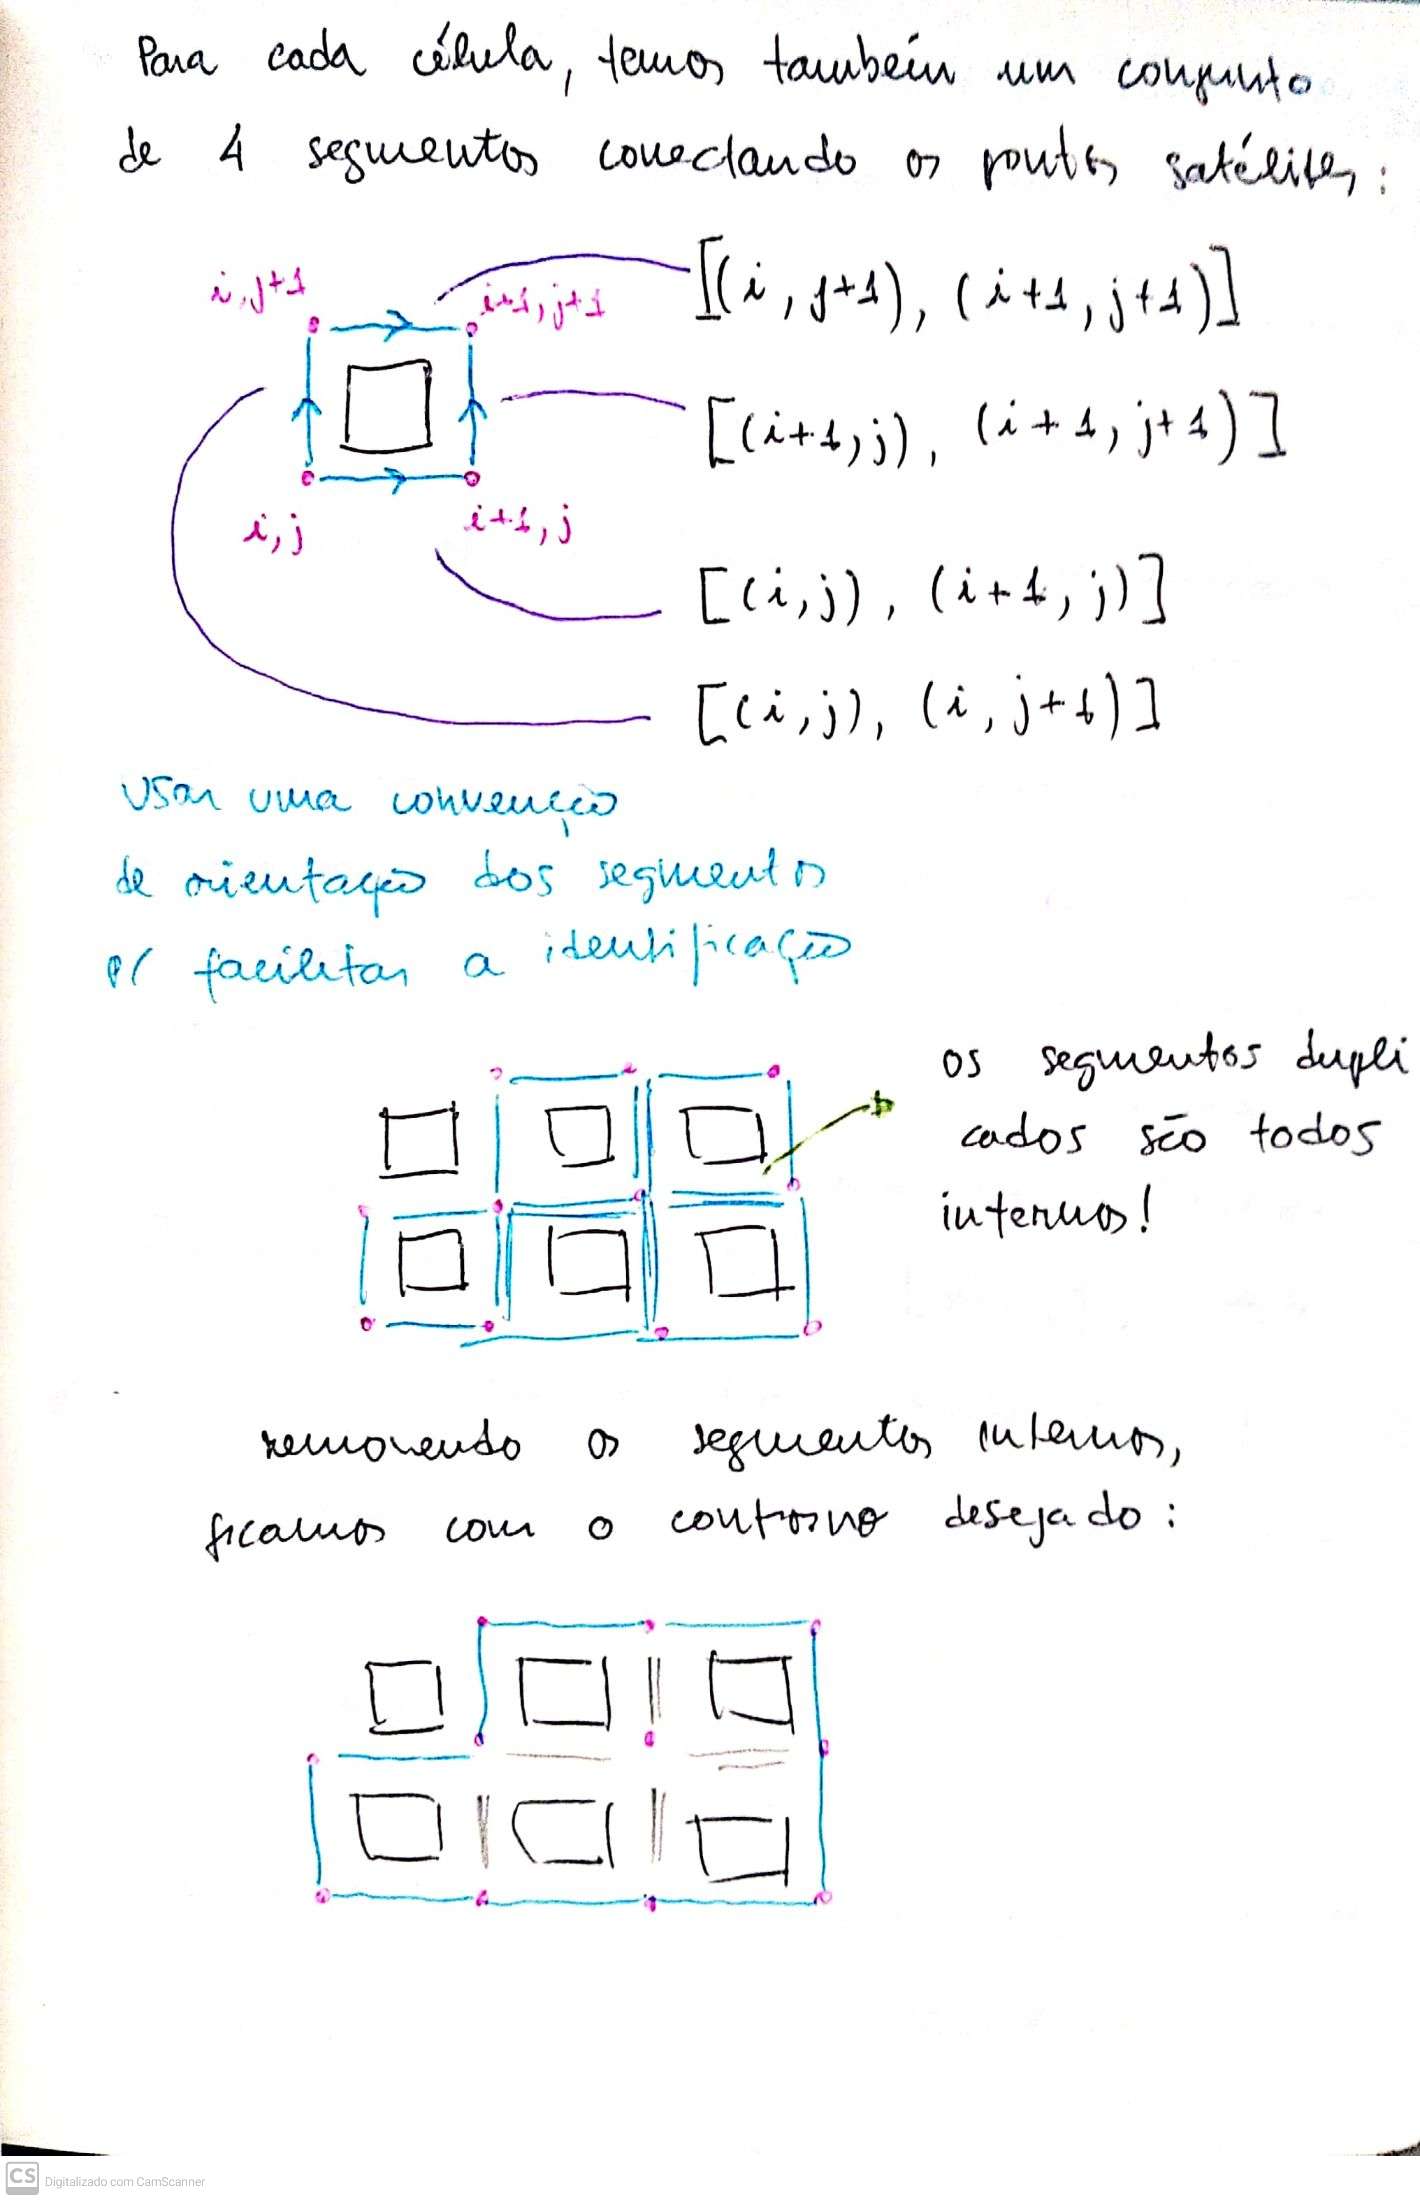 Para cada célula, temos também um conjunto
de 4 segmentos conectando os pontos satélites:
i, j+1
i+1, j+1
[(i, j+1), (i+1, j+1)]
[(i+1, j), (i+1, j+1)]
i, j
i+1, j
[(i, j), (i+1, j)]
[(i, j), (i, j+1)]
Usar uma convenção
de orientação dos segmentos
p/ facilitar a identificação
os segmentos dupli
cados são todos
internos!
removendo os segmentos internos,
ficamos com o contorno desejado:
CS Digitalizado com CamScanner